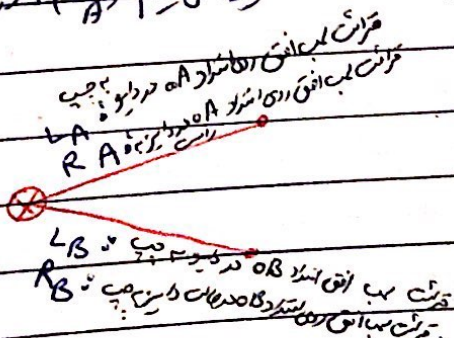 A
LA : قرائت لمب افق روی امتداد OA در دایره به چپ
RA : قرائت لمب افق روی امتداد OA در دایره به راست
LB : قرائت لمب افق امتداد OB در دایره به چپ
RB : قرائت لمب افق روی امتداد OB در حالت دایره به چپ